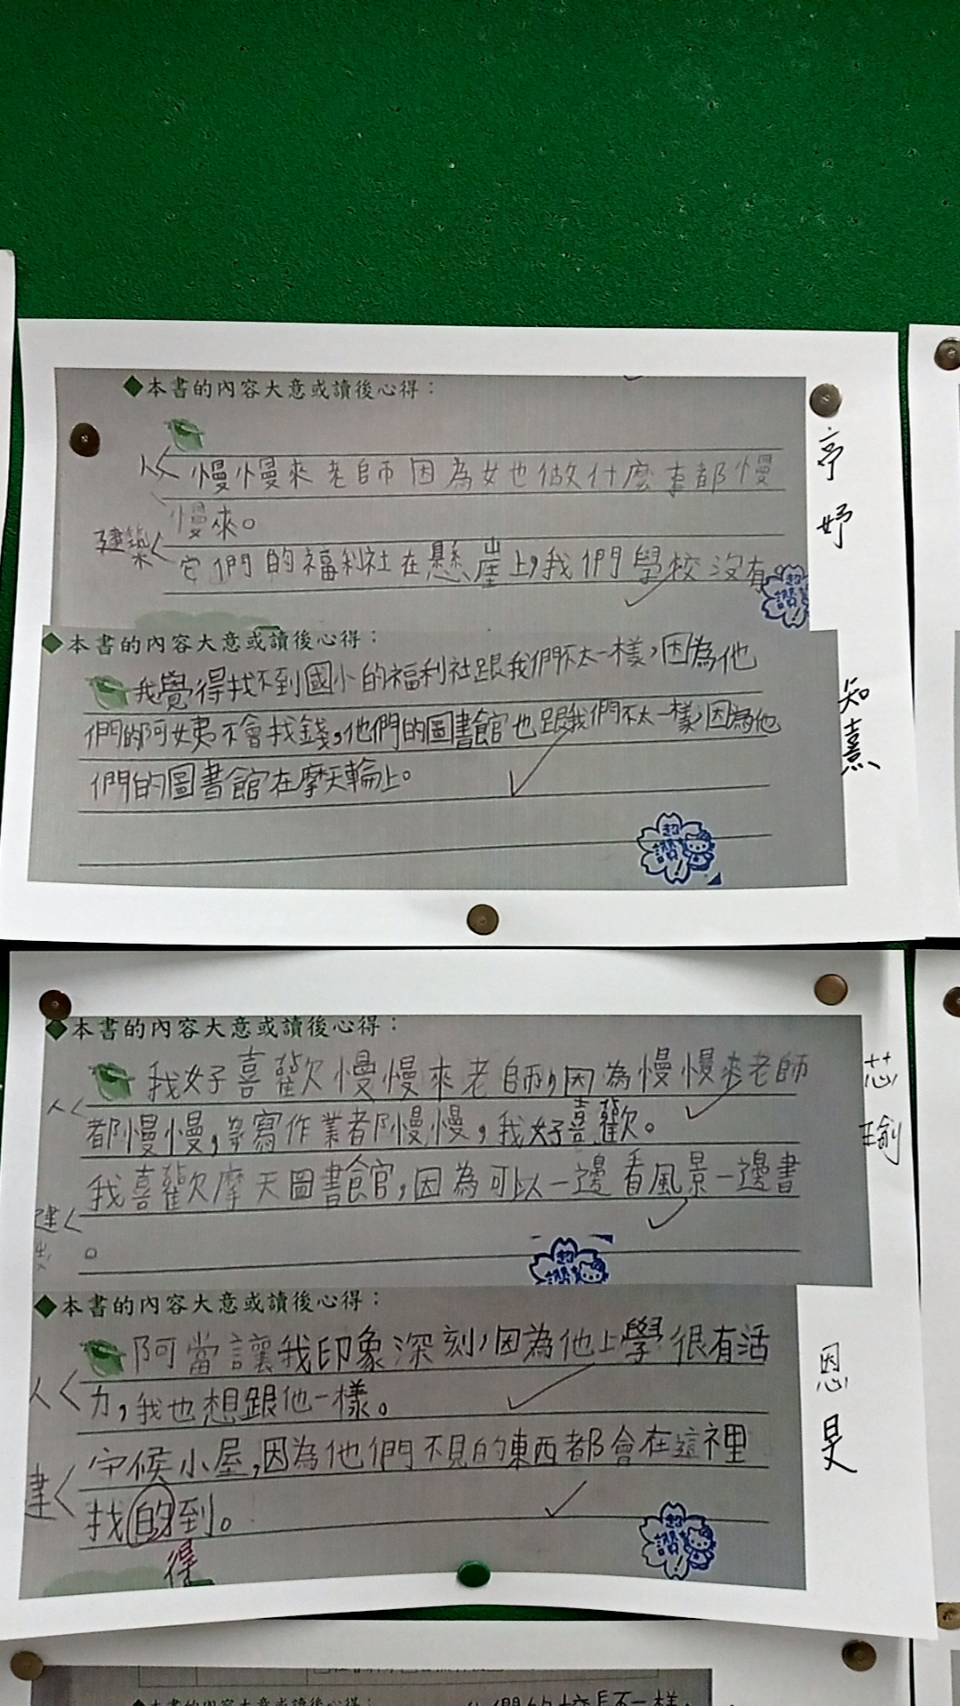 ◆本書的內容大意或讀後心得：
人
慢慢來老師因為她做什麼事都慢
慢來。
建築
它們的福利社在懸崖上，我們學校沒有
超讚
亭妤
◆本書的內容大意或讀後心得：
我覺得找不到國小的福利社跟我們不太一樣，因為他
們的阿姨不會找錢，他們的圖書館也跟我們不太一樣，因為他
們的圖書館在摩天輪上。
超讚！
知熹
◆本書的內容大意或讀後心得：
人
我好喜歡慢慢來老師，因為慢慢來老師
都慢慢，寫作業都慢慢，我好喜歡。
建
我喜歡摩天圖書館，因為可以一邊看風景一邊書
。
超讚
芯瑜
◆本書的內容大意或讀後心得：
人
阿當讓我印象深刻，因為他上學很有活
力，我也想跟他一樣。
建
守候小屋，因為他們不見的東西都會在這裡
找的到。
得
超讚！
恩旻
◆本書的內容大意或讀後心得：